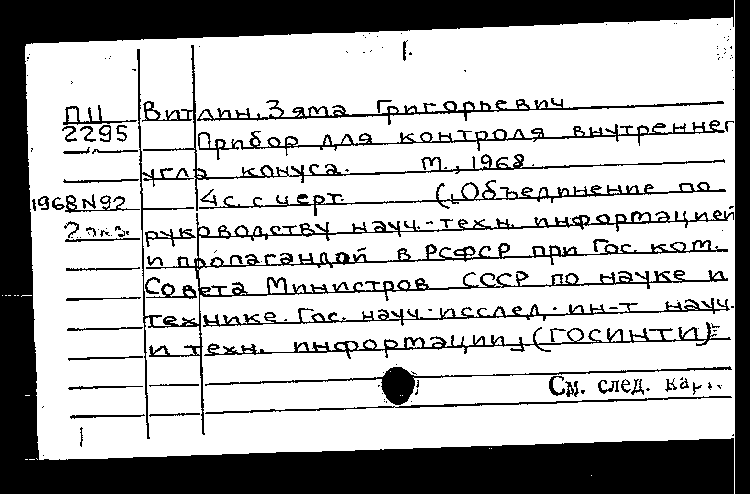 1.
П11 Витлин, Зяма Григорьевич
2295 Прибор для контроля внутреннего
угла конуса. М., 1968.
1968 N92 4 с. с черт. („Объединение по
2 экз. руководству науч.-техн. информацией
и пропагандой в РСФСР при Гос. ком.
Совета Министров СССР по науке и
технике. Гос. науч.-исслед. ин-т науч.
и техн. информации„ (ГОСИНТИ)
См. след. карт.